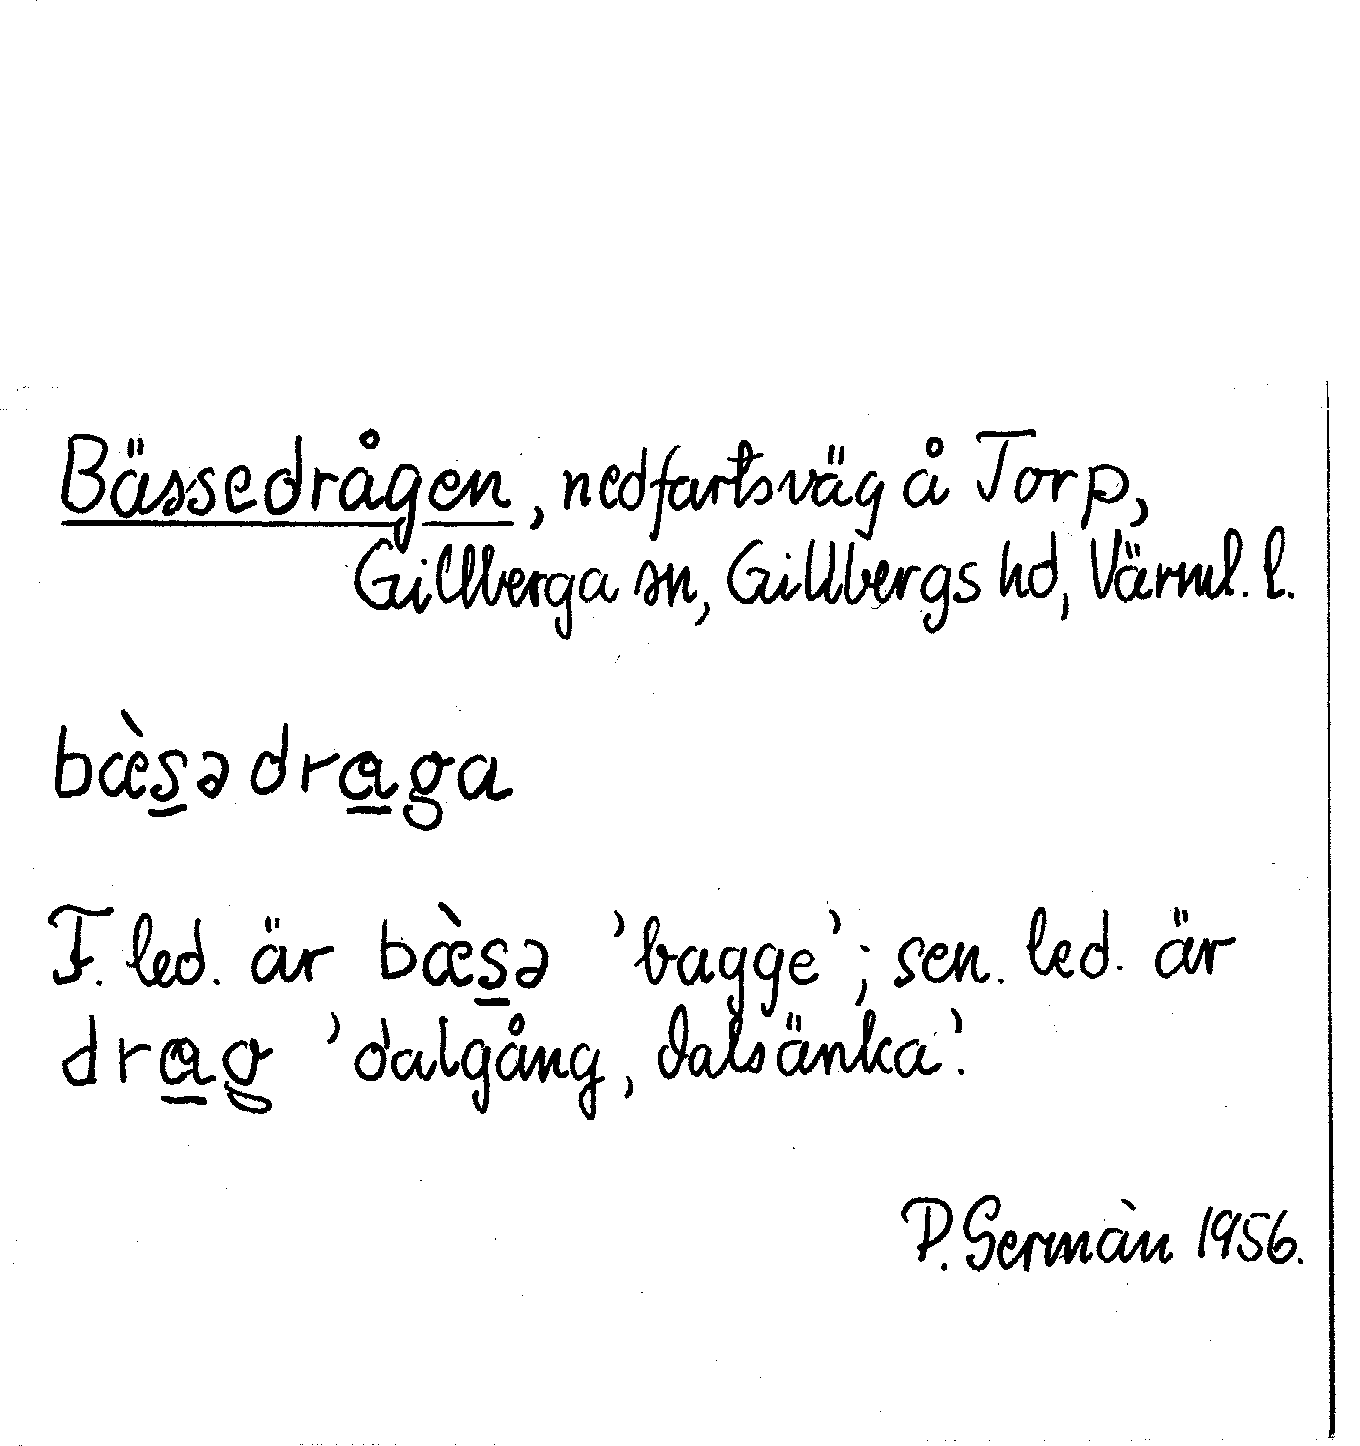 Bässedrågen, nedfartsväg å Torp,
Gillberga sn, Gillbergs hd, Värml. l.
bæ̀s̲ədra̲ga
F. led. är bæ̀s̲ə ’bagge’; sen. led. är
dra̲g ’dalgång, dalsänka’.
P. Germàn 1956.